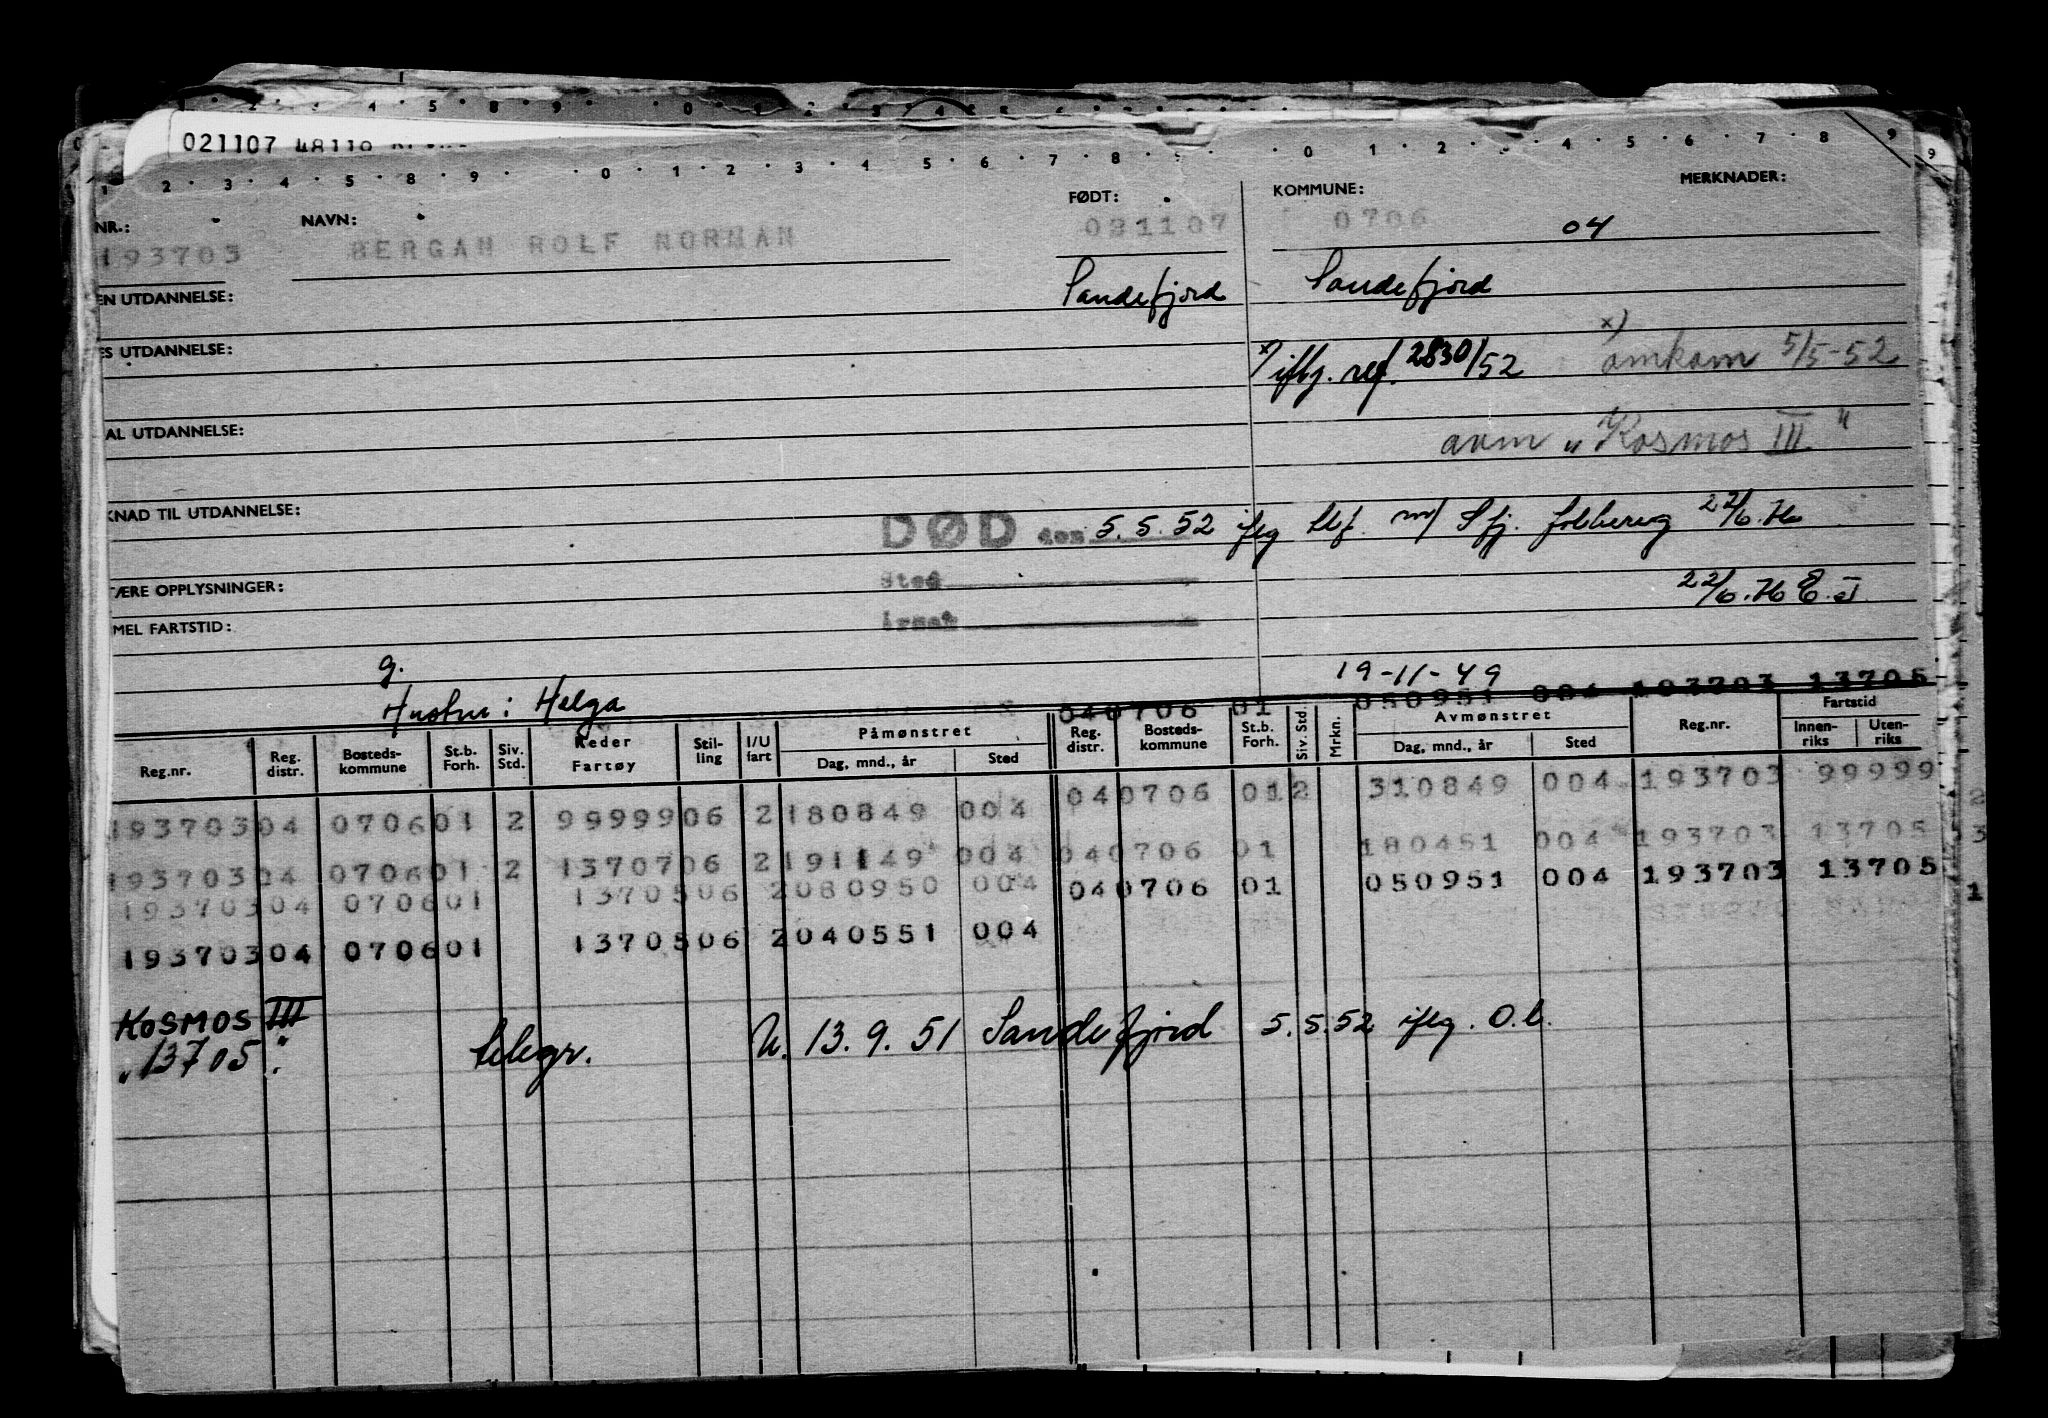 021107 48119
1 2 3 4 5 8 9 0 1 2 3 4 5 6 7 8 9 0 1 2 3 4 5 6 7 8 9
NR.: NAVN: FØDT: KOMMUNE: MERKNADER:
193703 BERGAN ROLF NORMAN 021107 0706 04
EN UTDANNELSE: Sandefjord Sandefjord
ES UTDANNELSE: x) iflg. ref. 2830/52 x) omkom 5/5-52
AL UTDANNELSE: avm „Kosmos III"
KNAD TIL UTDANNELSE: DØD den 5.5.52 iflg tlf. m/ Sfj. 22/6.
Sted
TÆRE OPPLYSNINGER: 22/6.
Årsak
MEL FARTSTID:
g. 19-11-49
Hustru: Helga
040706 01 050951 004 193703 13705
Reg.nr. Reg. distr. Bosteds-kommune St.b. Forh. Siv. Std. Reder Fartøy Stil-ling I/U fart Påmønstret Dag, mnd., år Sted Reg. distr. Bosteds-kommune St.b. Forh. Siv. Std. Mrkn. Avmønstret Dag, mnd., år Sted Reg.nr. Fartstid Innen-riks Uten-riks
193703 04 0706 01 2 99999 06 2 180849 004 040706 01 2 310849 004 193703 99999
193703 04 0706 01 2 13707 06 2 191149 004 040706 01 180451 004 193703 13705
193703 04 0706 01 13705 06 2 080950 004 040706 01 050951 004 193703 13705
193703 04 0706 01 13705 06 2 040551 004
KOSMOS III
„13705" telegr. U. 13.9.51 Sandefjord 5.5.52 iflg. O.b.
2
3
1